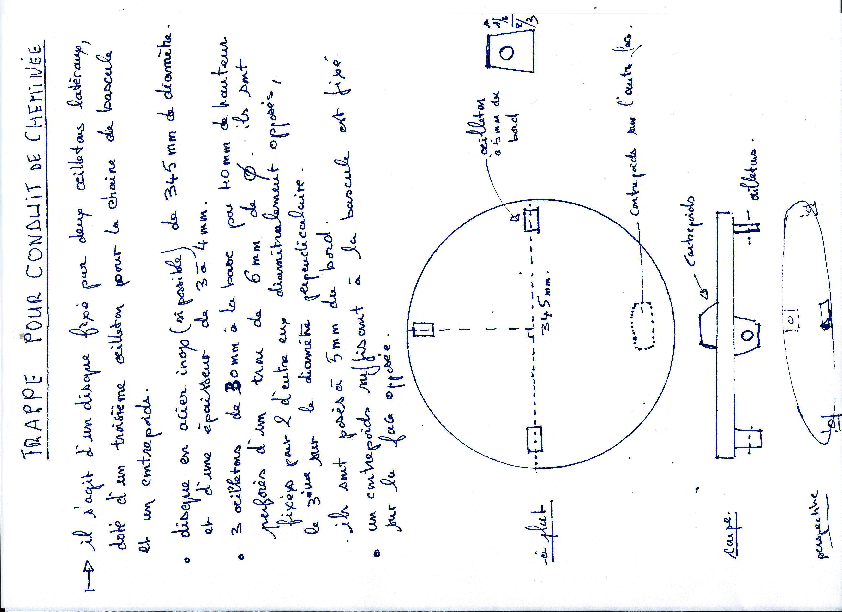 TRAPPE POUR CONDUIT DE CHEMINÉE
↦ il s'agit d'un disque fixé par deux œilletons latéraux,
doté d'un troisième œilleton pour la chaine de bascule
et un contrepoids.
• disque en acier inox (si possible) de 345 mm de diamètre.
et d'une épaisseur de 3 à 4 mm.
• 3 œilletons de 30 mm à la base par 40 mm de hauteur
perforés d'un trou de 6 mm de Ø. ils sont
fixés pour 2 d'entre eux diamétralement opposés,
le 3ème sur le diamètre perpendiculaire.
. ils sont posés à 5 mm du bord.
• un contrepoids suffisant à la bascule est fixé
sur la face opposée.
1/3
2/3
œilleton
à 5 mm du
bord
345 mm.
contrepoids sur l'autre face.
à plat
contrepoids
œilletons.
coupe.
perspective